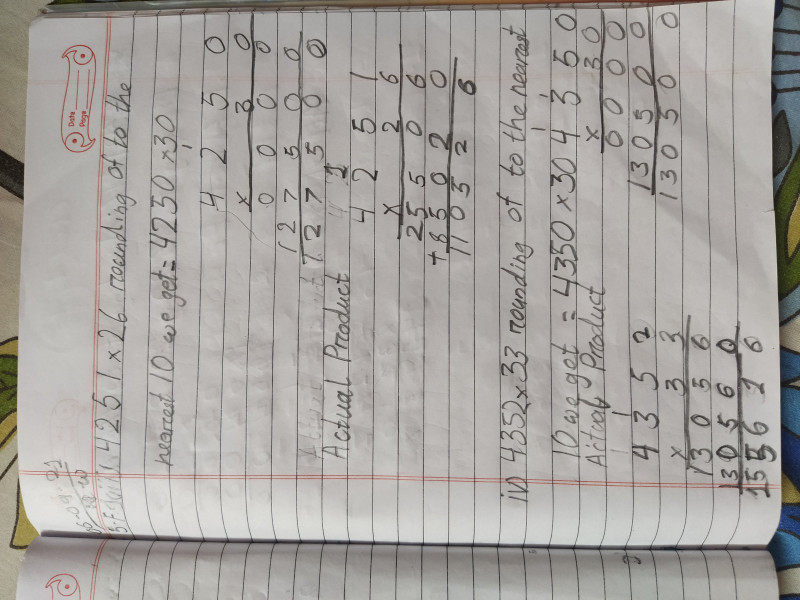 Date
Page
4251 × 26 rounding of to the
nearest 10 we get = 4250 × 30
1
4 2 5 0
× 3 0
0 0 0 0
1 2 7 5 0 0
1 2 7 5 0 0
Actual Product
1
4 2 5 1
× 2 6
2 5 5 0 6
+ 8 5 0 2 0
1 1 0 5 2 6
iv) 4352 × 33 rounding of to the nearest
10 we get = 4350 × 30
Actual Product
1 1
4 3 5 0
× 3 0
0 0 0 0
1 3 0 5 0 0
1 3 0 5 0 0
1
4 3 5 2
× 3 3
1 3 0 5 6
1 3 0 5 6 0
1 5 5 6 1 6